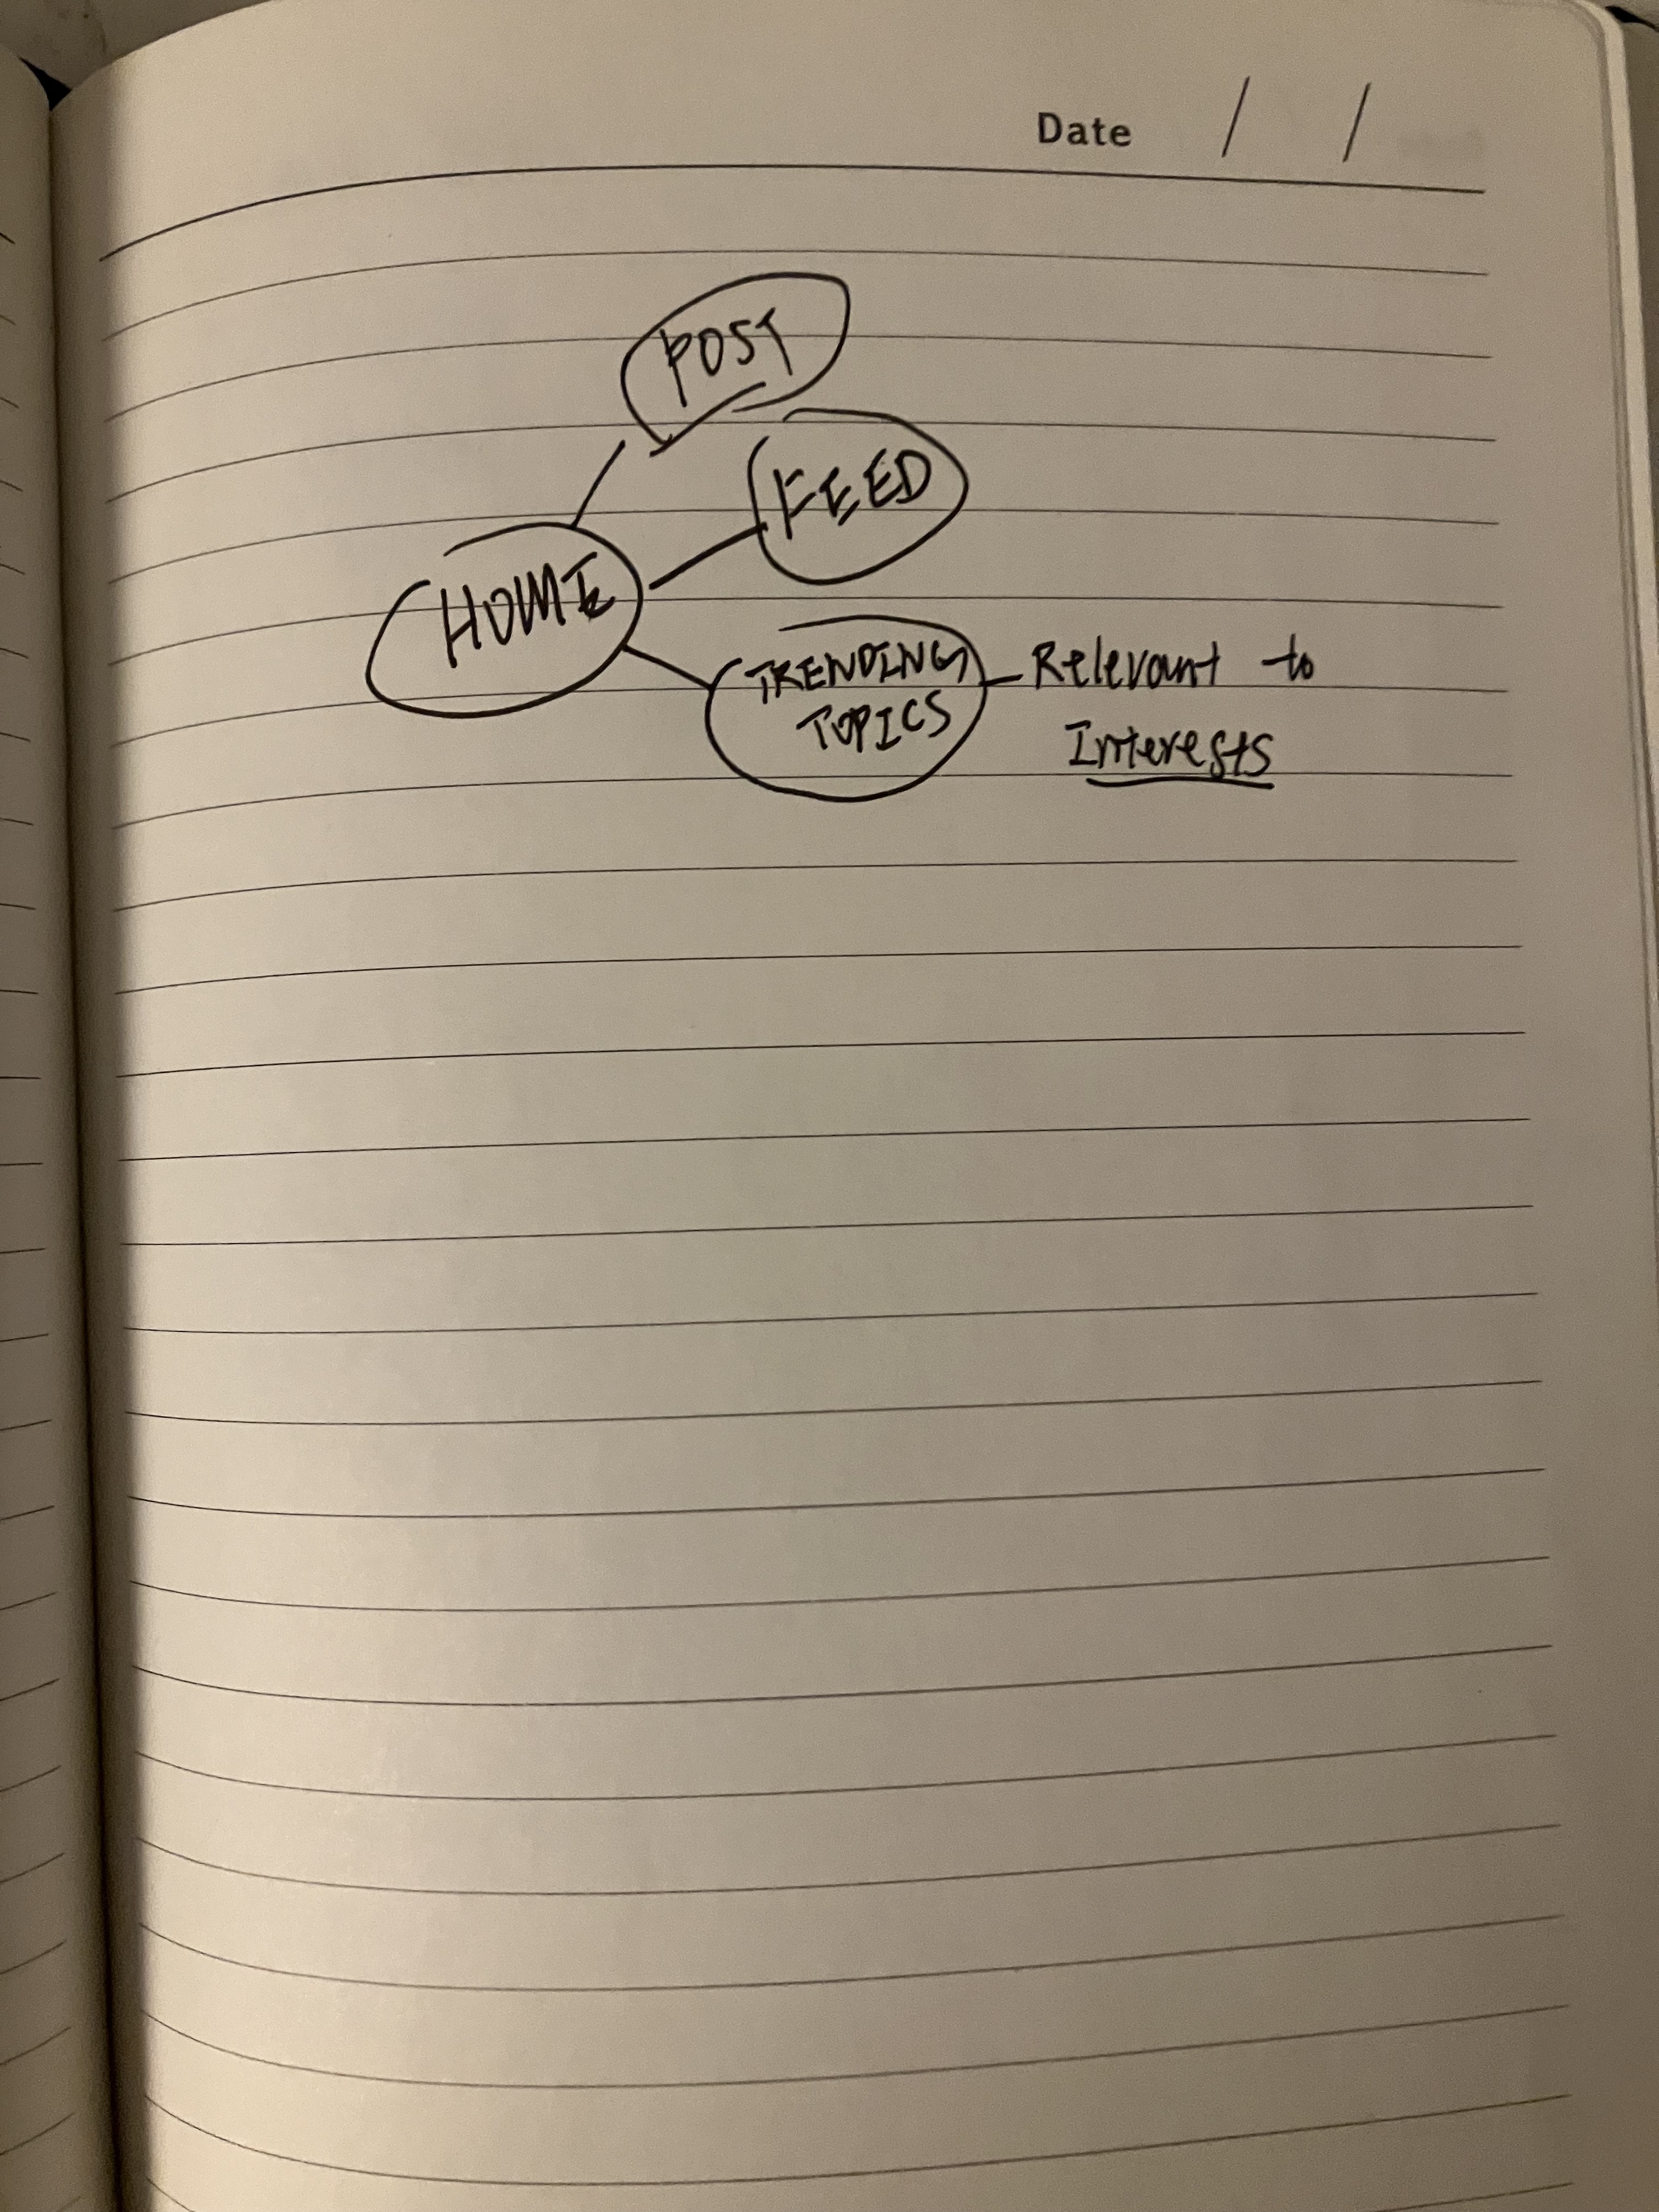 Date / /
POST
FEED
HOME
TRENDING
TOPICS
Relevant to
Interests